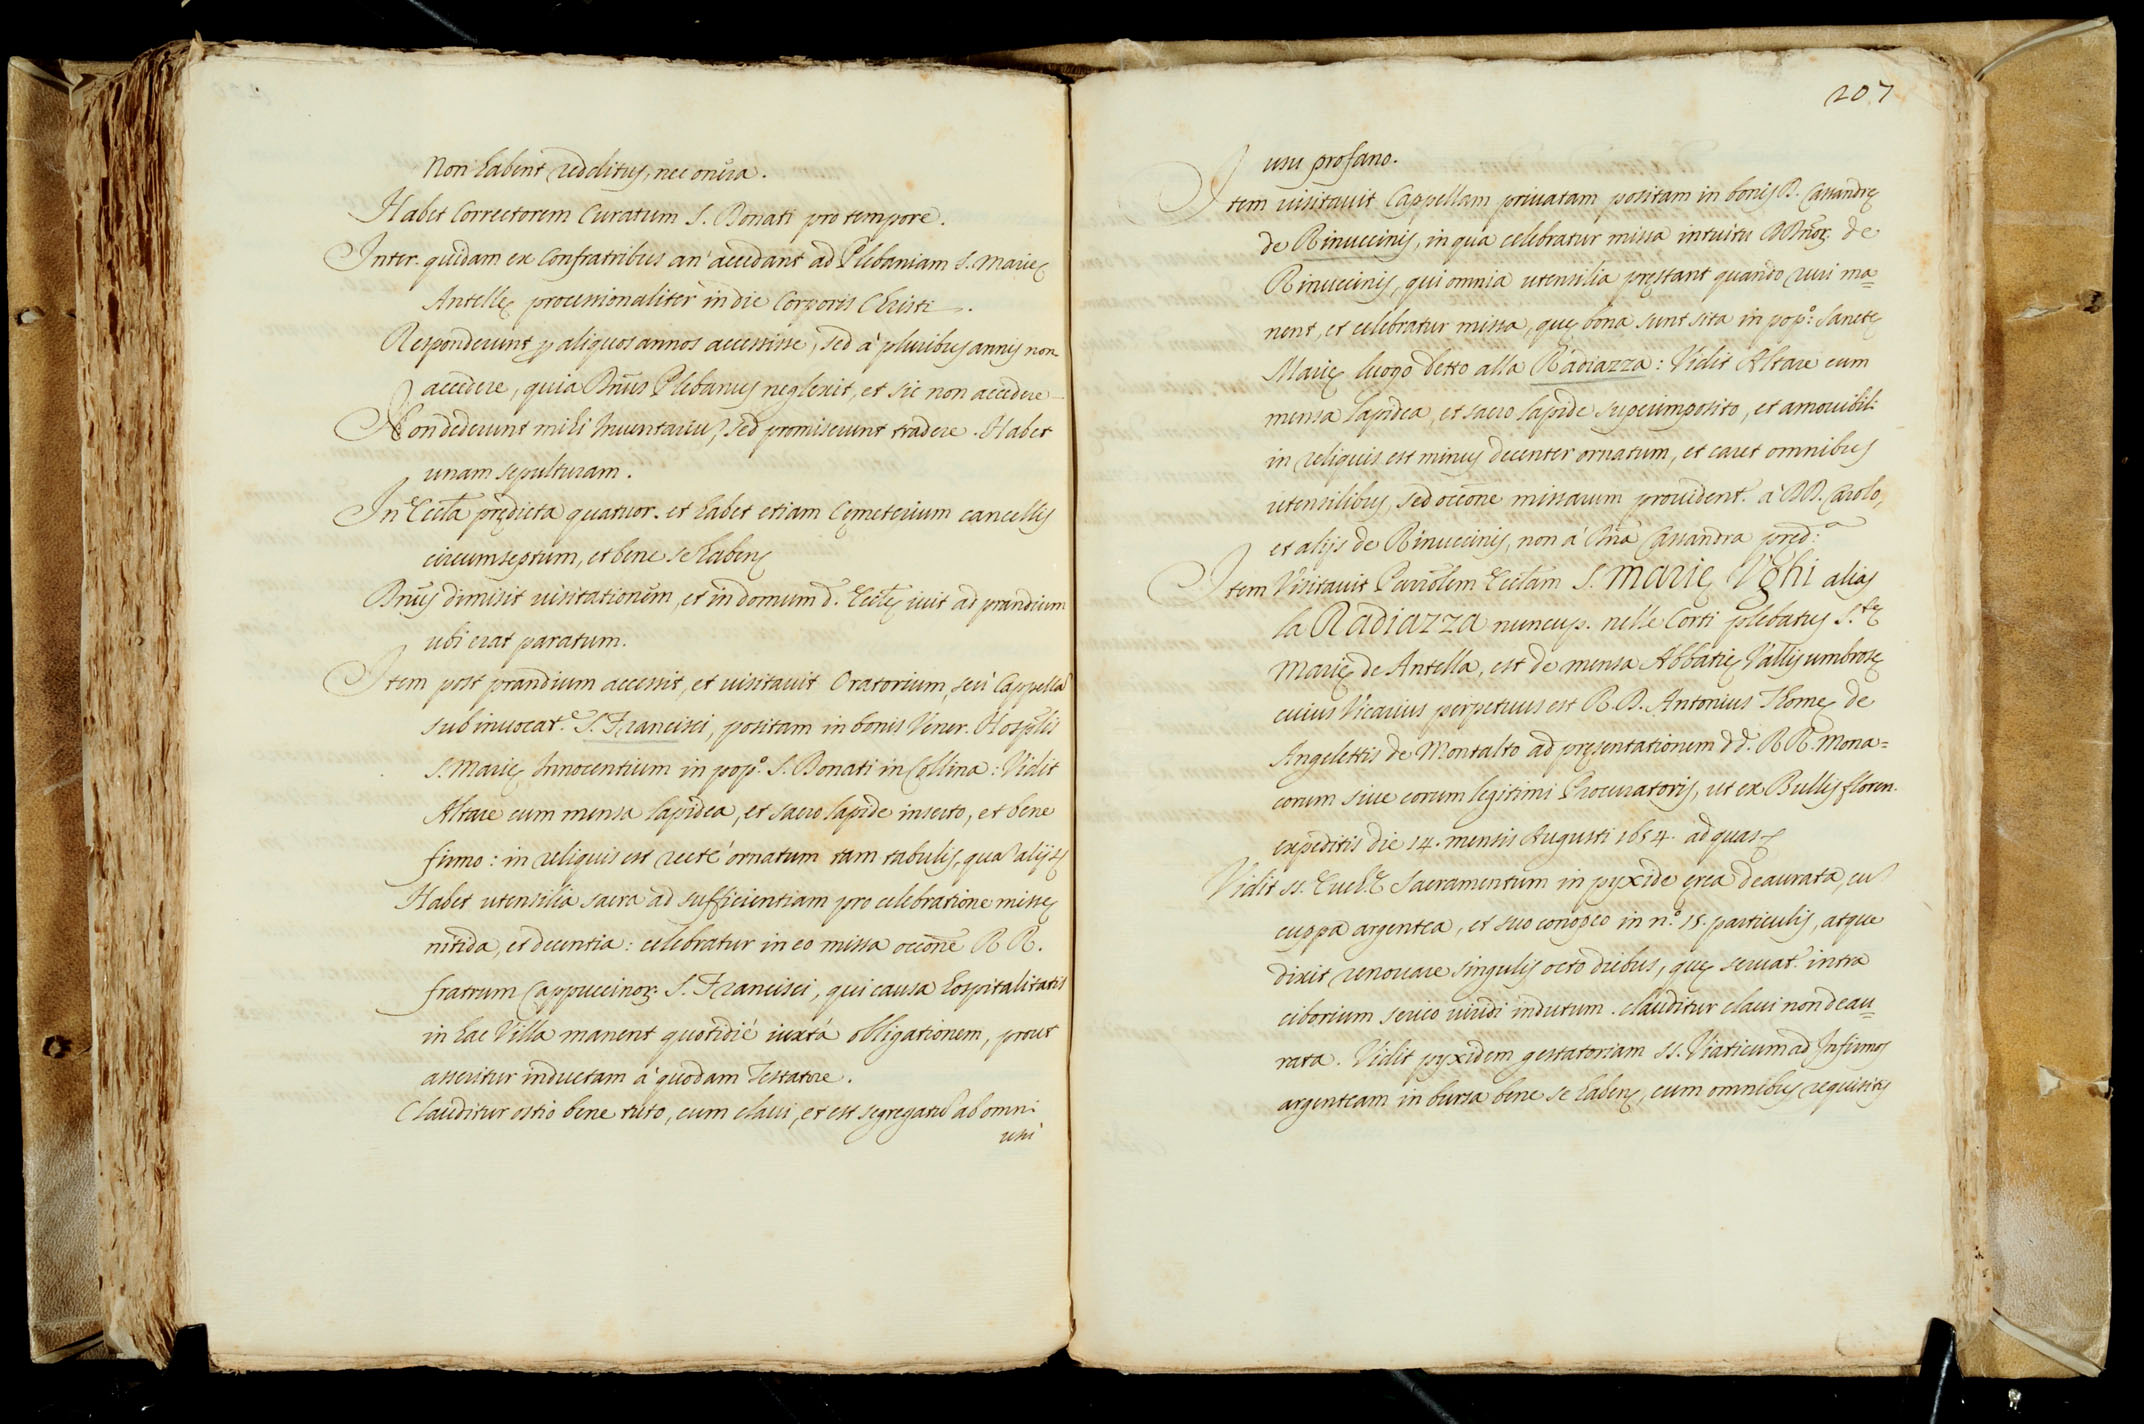 Non habent redditus, nec onera.
Habet Correctorem Curatum S. Donati pro tempore.
Inter. quidam ex Confratribus an' accedant ad Plebaniam S. Marię
Antellę processionaliter in die Corporis Christi.
Responderunt p aliquos annos accessisse, sed à pluribus annis non
accedere, quia Dnus Plebanus neglexit, et sic non accedere
Non dederunt mihi Inventariu, sed promiserunt tradere. Habet
unam sepulturam.
In Eccta prędicta quatuor. et habet etiam Cęmeterium cancellis
circumseptum, et bene se habens
Dnus dimisit visitationem, et in domum d. Ecctę ivit ad prandium
ubi erat paratum.
Item post prandium accessit, et visitavit Oratorium, seu Cappella
sub invocat.e S. Francisci, positam in bonis Vener. Hosptlis
S. Marię Innocentium in pop.o S. Donati in Collina: Vidit
Altare cum mensa lapidea, et sacro lapide inserto, et bene
firmo: in reliquis est rectè ornatum tam tabulis, qua alijs
Habet utensilia sacra ad sufficientiam pro celebratione missę
nitida, et decentia: celebratur in eo missa occone RR.
fratrum Cappuccinor. S. Francisci, qui causa hospitalitatis
in hac Villa manent quotidiè iuxtà obligationem, prout
asseritur inductam à quodam Testatore.
Clauditur ostio bene tuto, cum clavi, et est segregatu ab omni
usu
207
usu profano.
Item visitavit Cappellam privatam positam in bonis D. Cassandrę
de Rinuccinis, in qua celebratur missa intuitu DDnor. de
Rinuccinis, qui omnia utensilia pręstant quando ruri ma=
nent, et celebratur missa, quę bona sunt sita in pop.o Sanctę
Marię luogo detto alla Radiazza: Vidit Altare cum
mensa lapidea, et sacro lapide superimposito, et amovibili
in reliquis est minus decenter ornatum, et caret omnibus
utensilibus, sed occone missarum provident. à DD. Carolo,
et alijs de Rinuccinis, non à Dna Cassandra pred.a
Item Visitavit Parrolem Ecclam S. Marię Ughi alias
la Radiazza nuncup. nelle Corti plebatus S.tę
Marię de Antella, est de mensa Abbatię Vallisumbrosę
cuius Vicarius perpetuus est R. D. Antonius Thomę de
Angelettis de Montalto ad pręsentationem dd. RR. Mona=
corum sive eorum legitimi Procuratoris, ut ex Bullis floren.
expeditis die 14. mensis Augusti 1654. ad quas
Vidit SS. Euch.ę Sacramentum in pyxide ęrea deaurata, cu
cuppa argentea, et suo conopeo in n.o 15. particulis, atque
dixit renovare singulis octo diebus, quę servat. intra
ciborium serico viridi indutum. clauditur clavi non deau=
rata. Vidit pyxidem gestatoriam SS. Viaticum ad Infirmos
argenteam in bursa bene se habens, cum omnibus requisitis